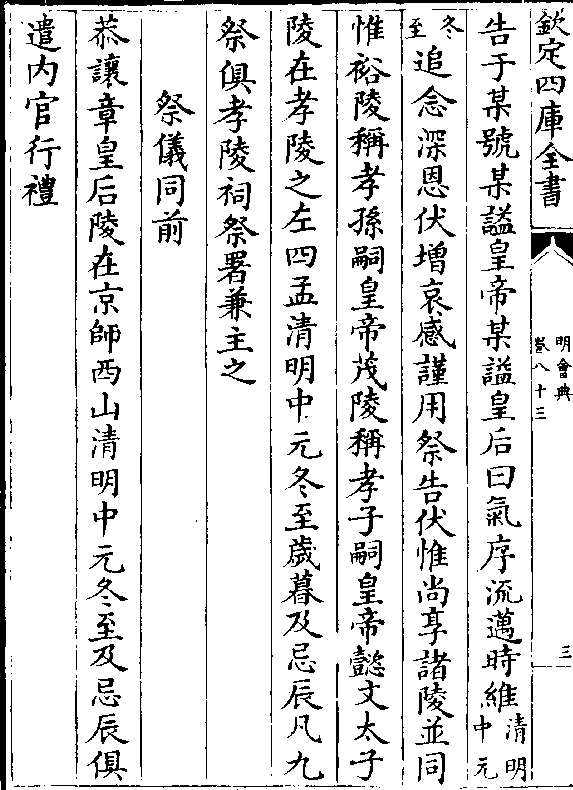 欽定四庫全書
明會典
卷八十三
三
告于某號某謚皇帝某謚皇后曰氣序流邁時維清明中元
冬至追念深恩伏增哀感謹用祭告伏惟尚享諸陵並同
惟裕陵稱孝孫嗣皇帝茂陵稱孝子嗣皇帝懿文太子
陵在孝陵之左四孟清明中元冬至歲暮及忌辰凡九
祭俱孝陵祠祭署兼主之
祭儀同前
恭讓章皇后陵在京師西山清明中元冬至及忌辰俱
遣内官行禮